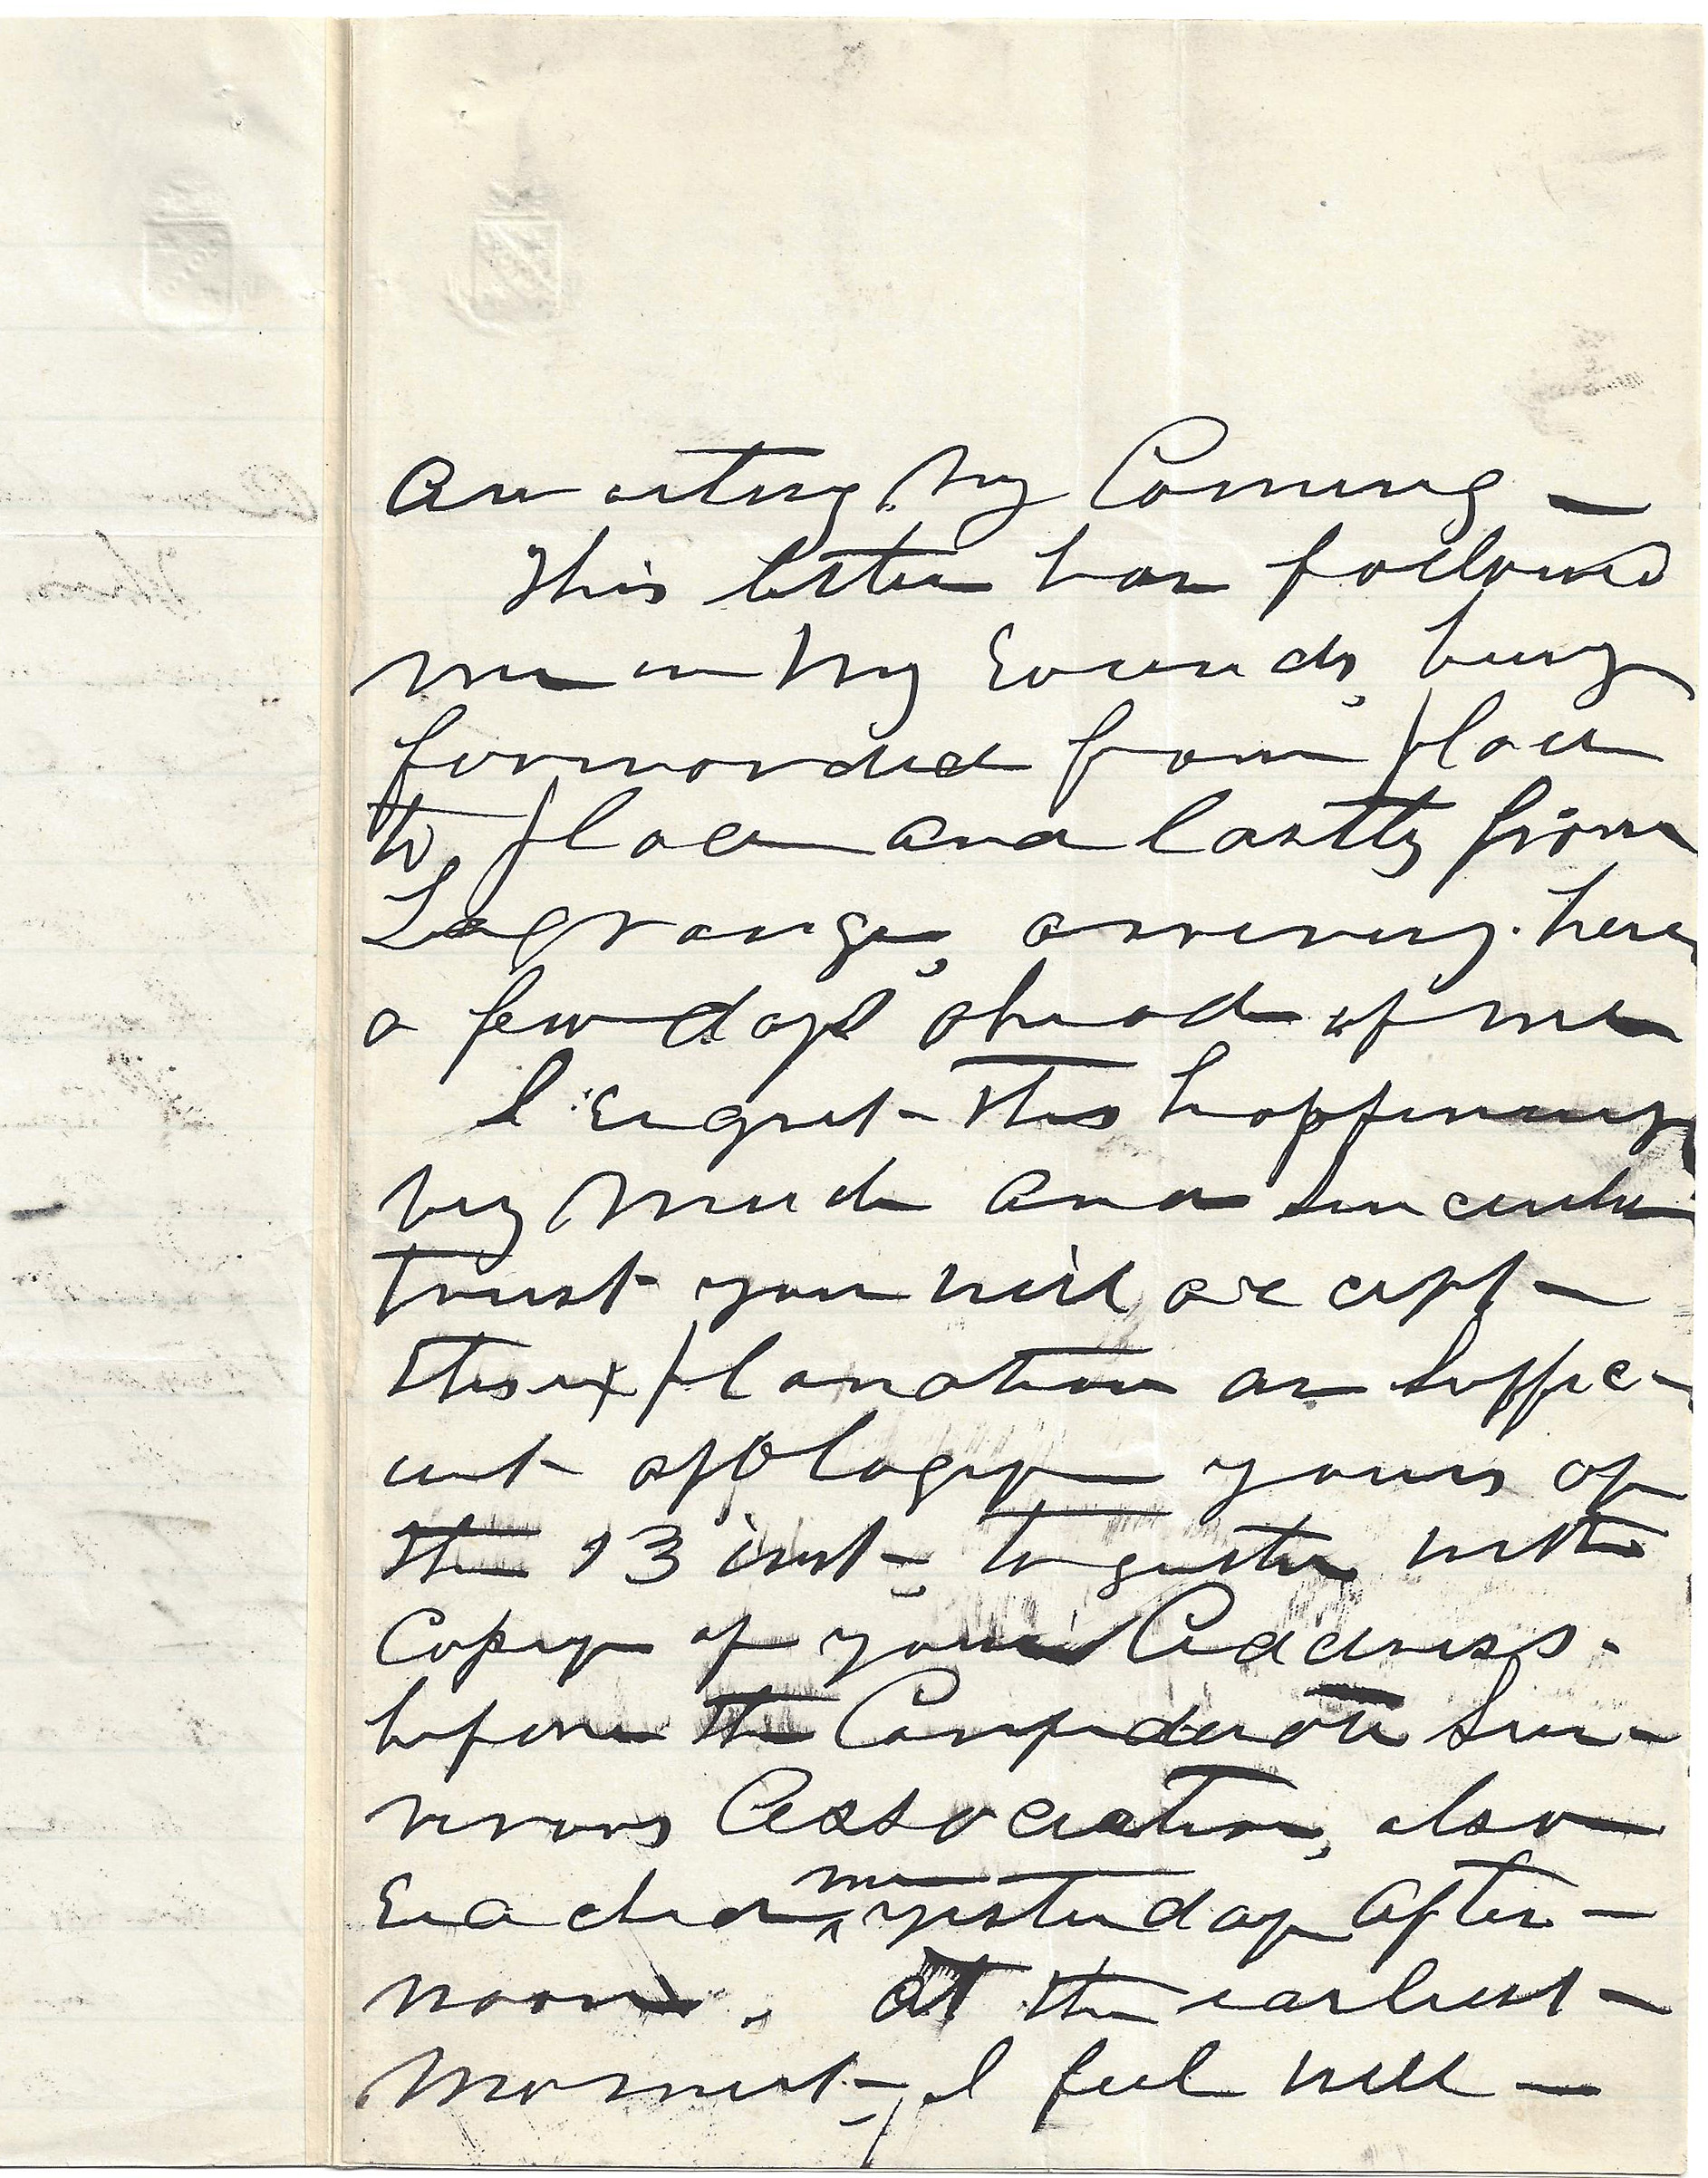 awaiting my Coming —
This letter has followed
me in my rounds, being
forwarded from place
to place and lastly from
Lagrange, arriving here
a few days ahead of me
I regret this happening
very much and sincerely
trust you will accept
this explanation as suffic-
ient apology yours of
the 13 inst- together with
Copy of your Address
before the Confederate Sur-
vivors Association, also
reached me yesterday after-
noon. At the earliest
moment, I feel well —